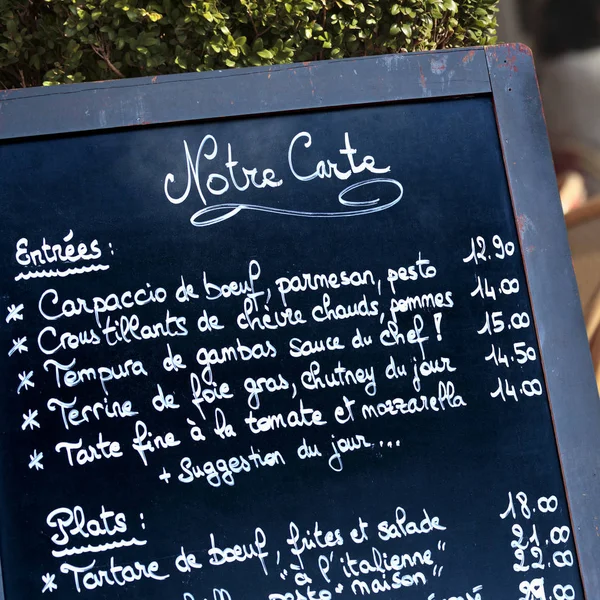 Notre Carte
Entrées :
* Carpaccio de bœuf, parmesan, pesto 12.90
* Croustillants de chèvre chauds, pommes 14.00
* Tempura de gambas sauce du chef ! 15.00
* Terrine de foie gras, chutney du jour 14.50
* Tarte fine à la tomate et mozzarella 14.00
+ Suggestion du jour ...
Plats :
* Tartare de bœuf, frites et salade 18.00
"à l'italienne" 21.00
pesto "maison" 22.00